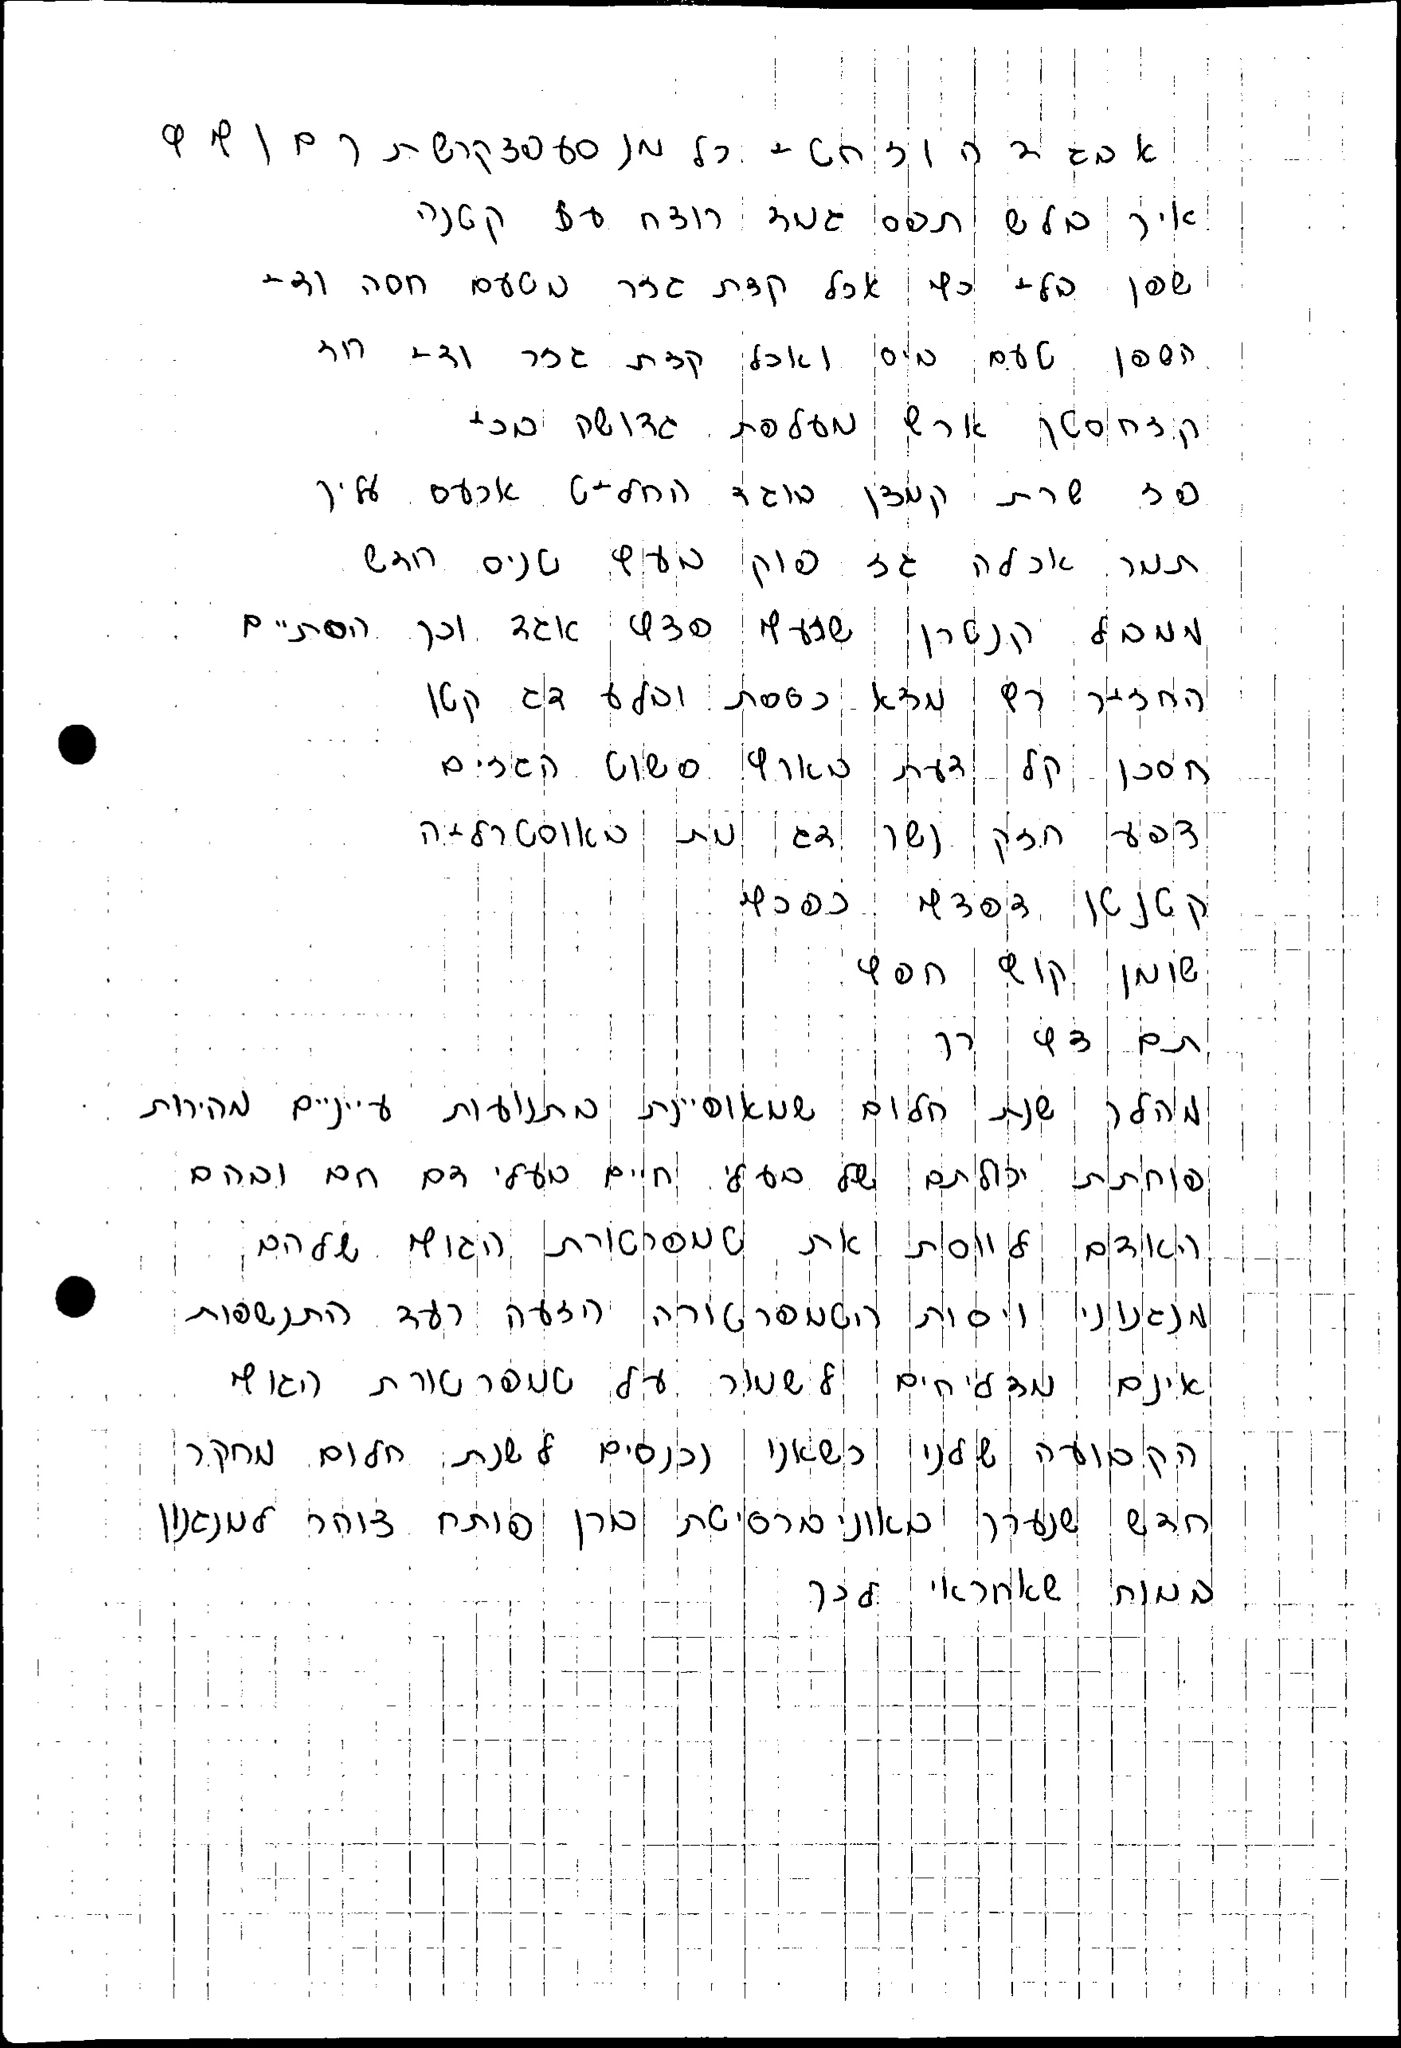 אבגדהוזחטי כל מנ סעפצקרשת ך ם ן ף ץ
איך בלש תפס גמד רוצח עז קטנה
שפן בלי כף אכל קצת גזר בטעם חסה ודי
השפן טעם ביס ואכל קצת גזר ודי חד
קזחסטן ארץ מעלפת גדושה בכי
פז שרת קמצן בוגד החליט ארעס עליך
תמר אכלה גז פוק בעץ טניס חדש
ממבל קנטרן שזעף סדץ אגד וכך הסתיים
החזיר רץ מצא כססת ובלע דג קטן
חסכן קל דעת בארץ משוט הגזים
צפע חזק נשר דג מת באוסטרליה
קטנטן דפדף כפכף
שומן קוץ חפף
תם צף רך
מהלך שנת חלום שמאופיינת בתנועות עייניים מהירות
פוחתת יכולתם של בעלי חיים בעלי דם חם ובהם
האדם לווסת את טמפרטורת הגוף שלהם
מנגנוני ויסות הטמפרטורה הזעה רעד התנשפות
אינם מצליחים לשמור על טמפרטורת הגוף
הקבועה שלנו כשאנו נכנסים לשנת חלום מחקר
חדש שנערך באוניברסיטת ברן פותח צוהר למנגנון
במוח שאחראי לכך